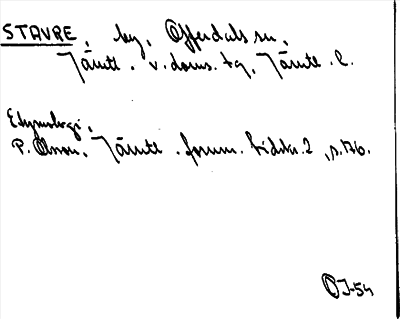 STAVRE, by, Offerdals sn,
Jämtl. v. doms. tg, Jämtl. l.
Etymologi,
P. Olsson, Jämtl. fornm. tidskr. 2, s. 176.
OJ-54